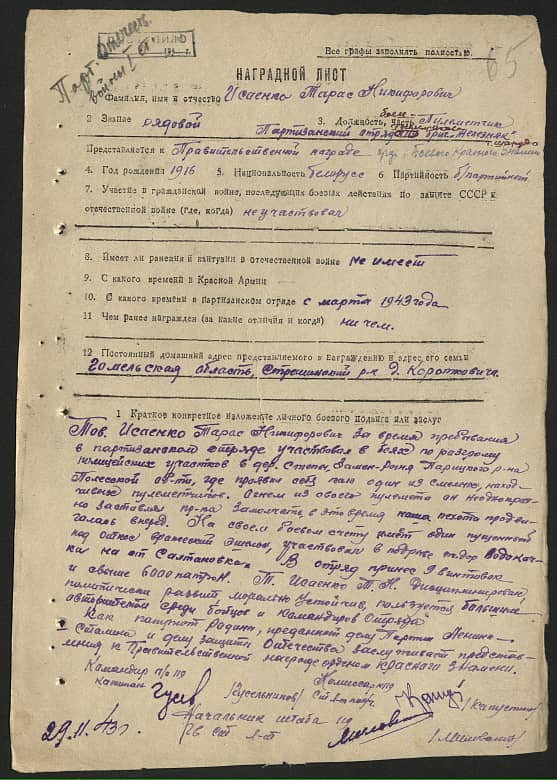 Парт. Отечеств.
войны I ст.
65
Все графы заполнять полностью.
НАГРАДНОЙ ЛИСТ
Фамилия, имя и отчество Исаенко Тарас Никифорович
2 Звание рядовой 3. Должность, часть боец-пулеметчик
Партизанский отряд бриг. "Железняк"
Представляется к Правительственной награде орд. Боевого Красного Знамени
4. Год рождения 1916 5. Национальность белорусс 6 Партийность б/партийной
7. Участие в гражданской войне, последующих боевых действиях по защите СССР и
отечественной войне (где, когда) не участвовал
8. Имеет ли ранения и кантузии в отечественной войне не имеет
9. С какого времени в Красной Армии
10. С какого времени в партизанском отряде с марта 1943 года
11 Чем ранее награжден (за какие отличия и когда) ни чем.
12 Постоянный домашний адрес представляемого к награждению и адрес его семьи
Гомельская область, Стрешинский р-н д. Короткович
1 Краткое конкретное изложение личного боевого подвига или заслуг
Тов. Исаенко Тарас Никифорович за время пребывания
в партизанском отряде участвовал в боях по разгрому
полицейских участков в дер. Паричского р-на
Полесской об-ти, где проявил себя как один из смелых, наход-
чивых пулеметчиков. Огнем из своего пулемета он неоднократ-
но заставлял пр-ка замолчать, в это время наша пехота продви-
галась вперед. На своем боевом счету имеет один пущенный
под откос вражеский эшелон, участвовал в подрыве жел.дор водокач-
ки на ст Салтановка. В отряд принес 9 винтовок
и свыше 6000 патрон. Т. Исаенко Т. Н. Дисциплинирован,
политически развит морально устойчив, пользуется большим
авторитетом среди бойцов и командиров отряда
Как патриот Родины, преданный делу Партии Ленина-
Сталина и делу защиты Отечества заслуживает представ-
ления к Правительственной награде орденом Красного Знамени.
Командир п/о Комиссар п/о
капитан /Гусельников/ Ст. /Капустин/
Начальник штаба п/о
Гв ст. л-т
29.11.43г.